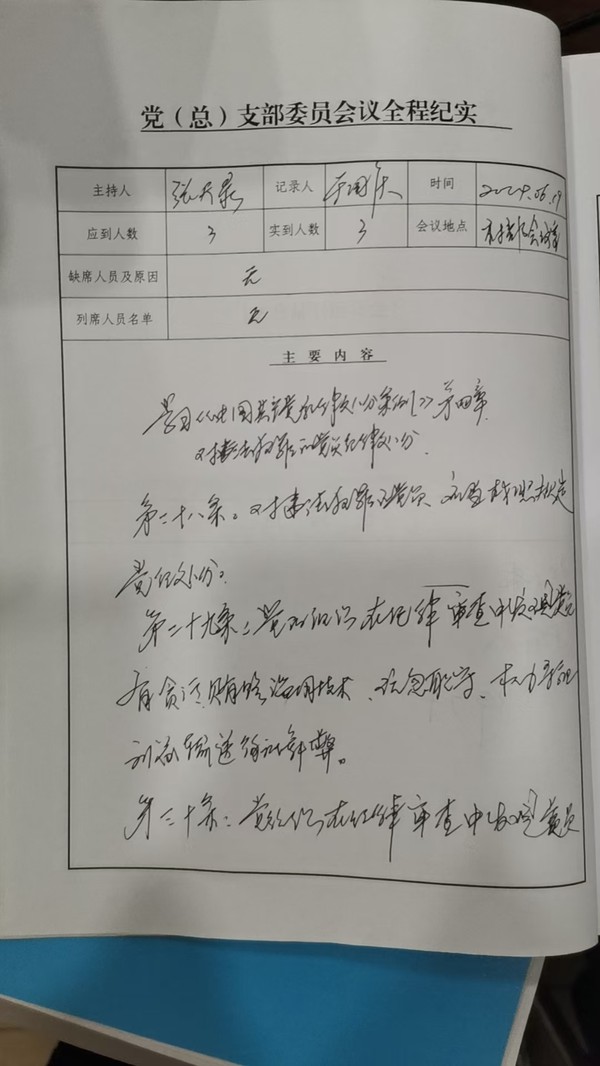 党（总）支部委员会议全程纪实
主持人 张 记录人 时间 2024.06.19
应到人数 3 实到人数 3 会议地点 会议室
缺席人员及原因 无
列席人员名单 无
主要内容
学习《中国共产党纪律处分条例》第四章
对违法犯罪的党员纪律处分.
第二十八条。对违法犯罪的党员、
党纪处分。
第二十九条：党的组织在纪律审查中发现党员
有贪污贿赂滥用、玩忽职守、权力寻租
利益输送徇私舞弊。
第三十条：党组织在纪律审查中发现党员